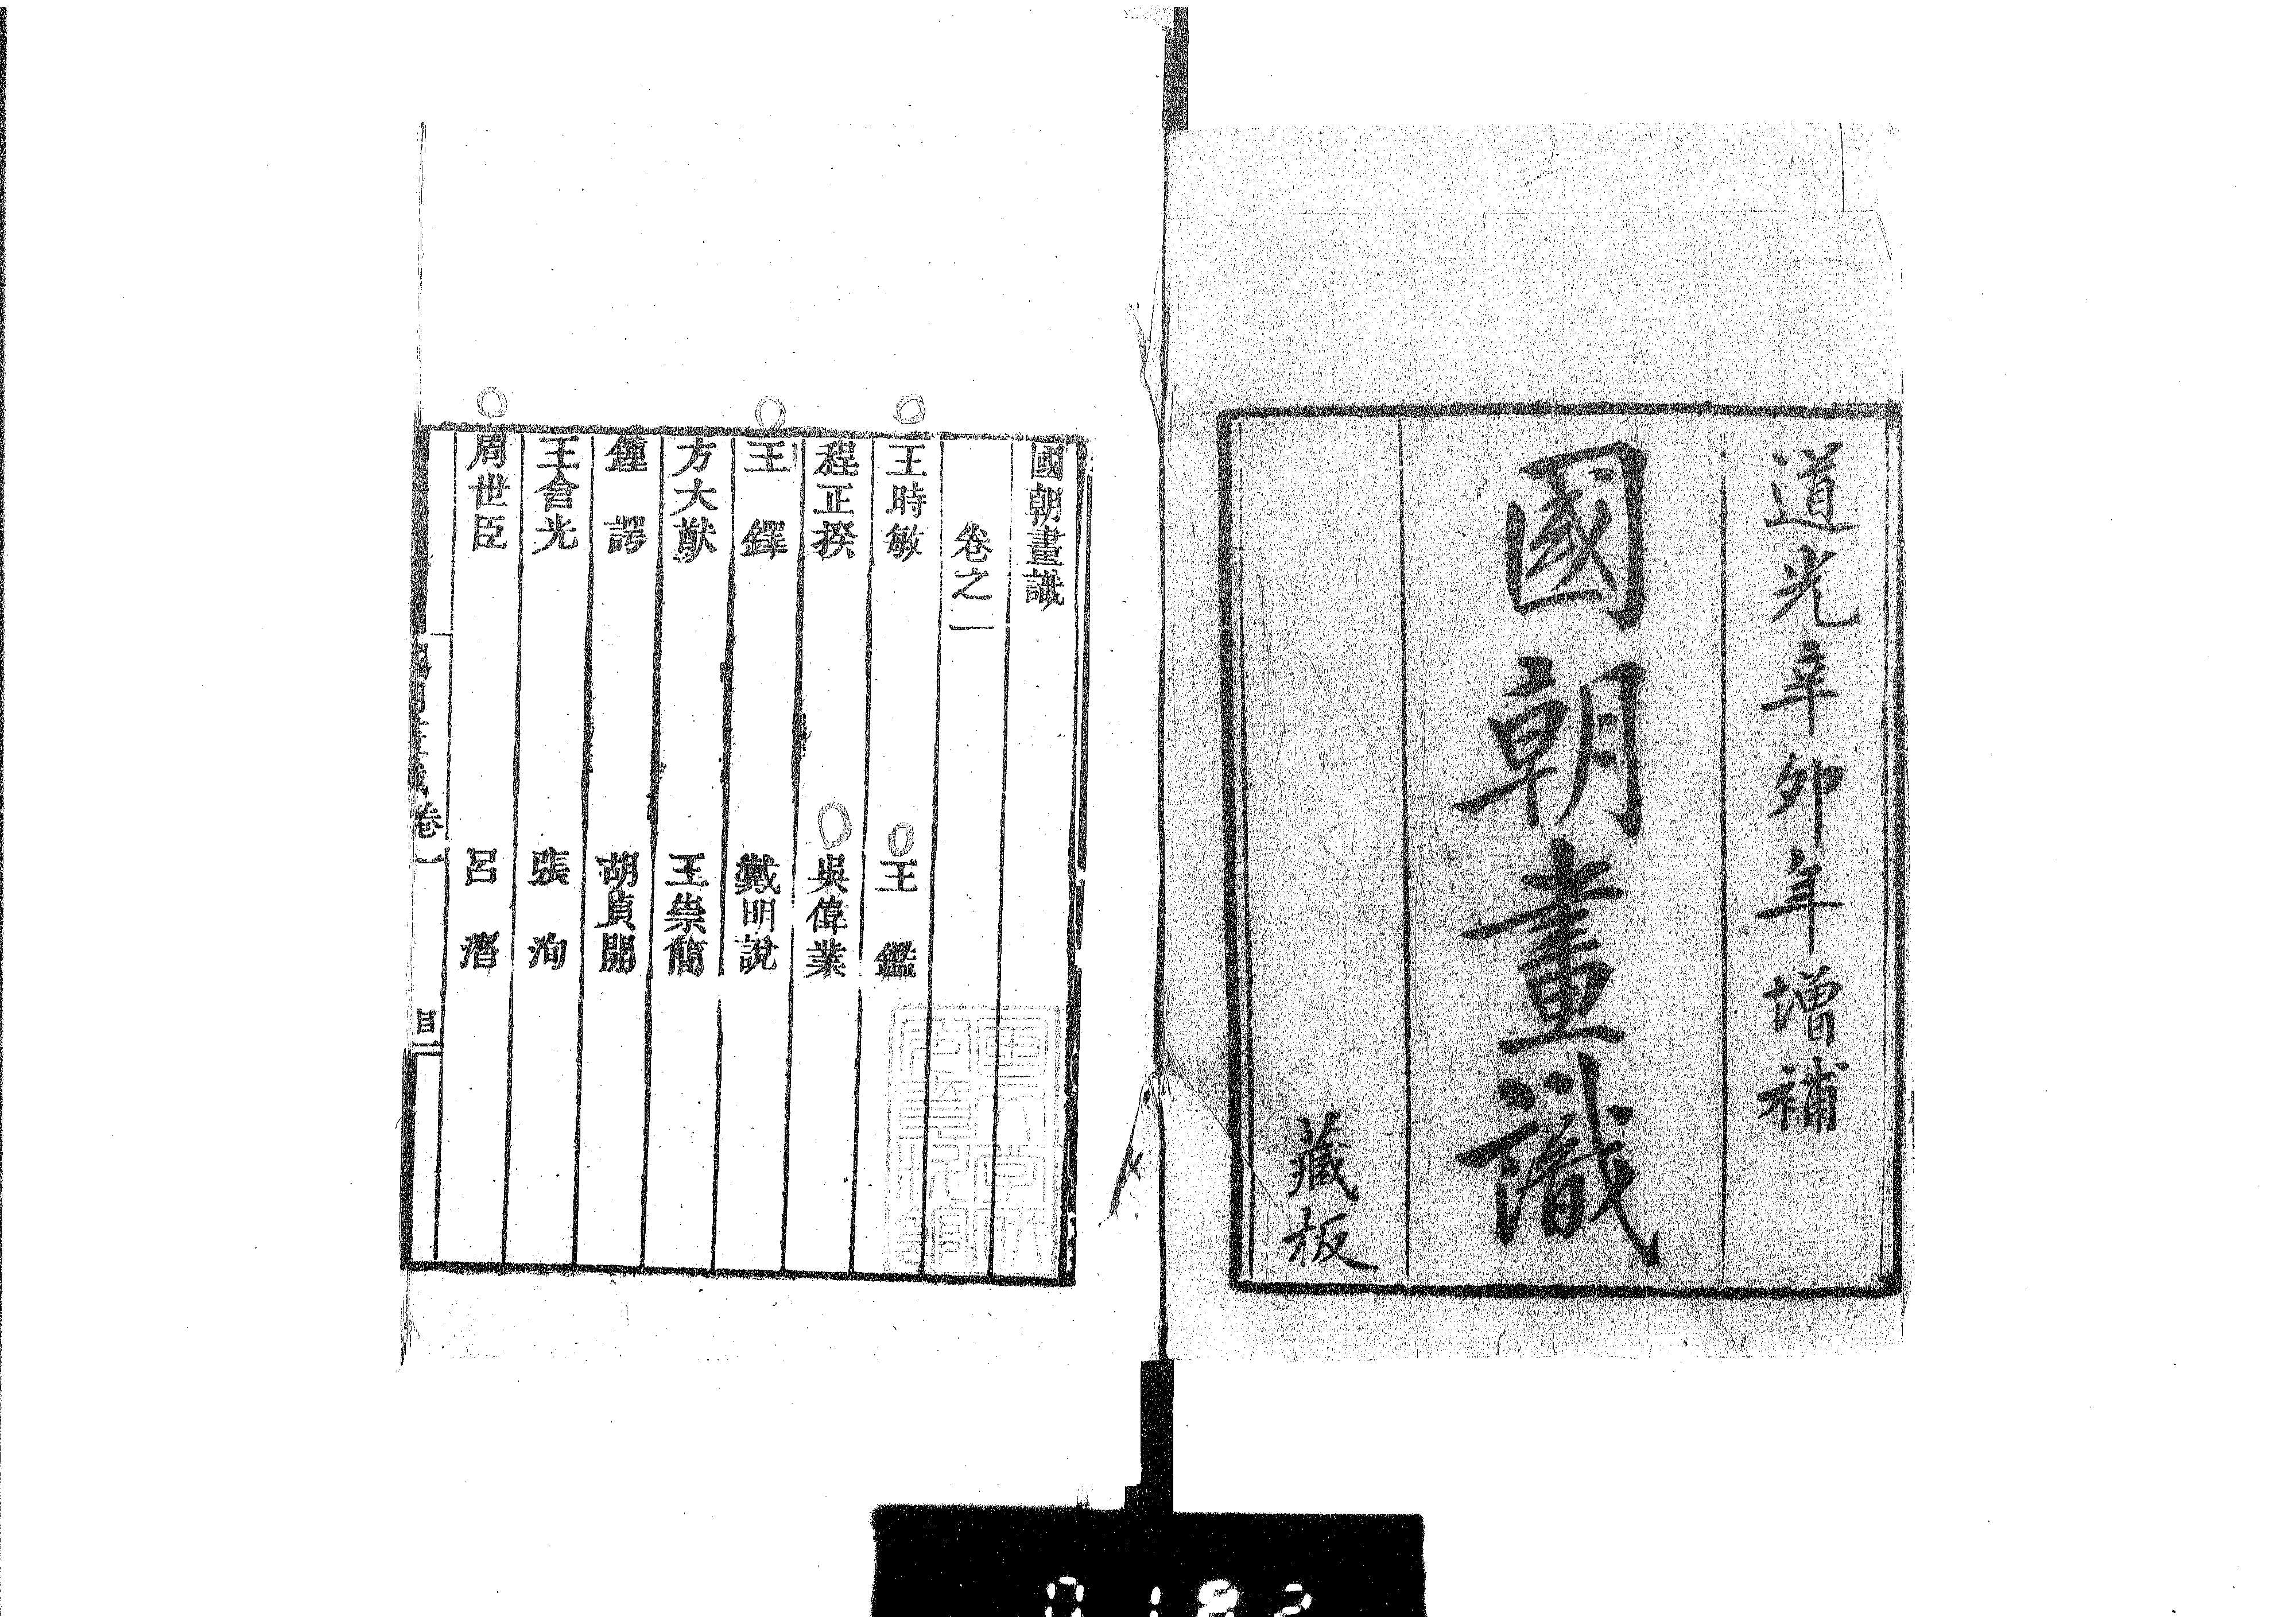 道光辛卯年增補
國朝畫識
藏板
國朝畫識
卷之一
王時敏　王鑑
程正揆　吳偉業
王鐸　戴明說
方大猷　王崇簡
鍾諤　胡貞開
王含光　張洵
周世臣　呂潛
國朝畫識 卷一 目一